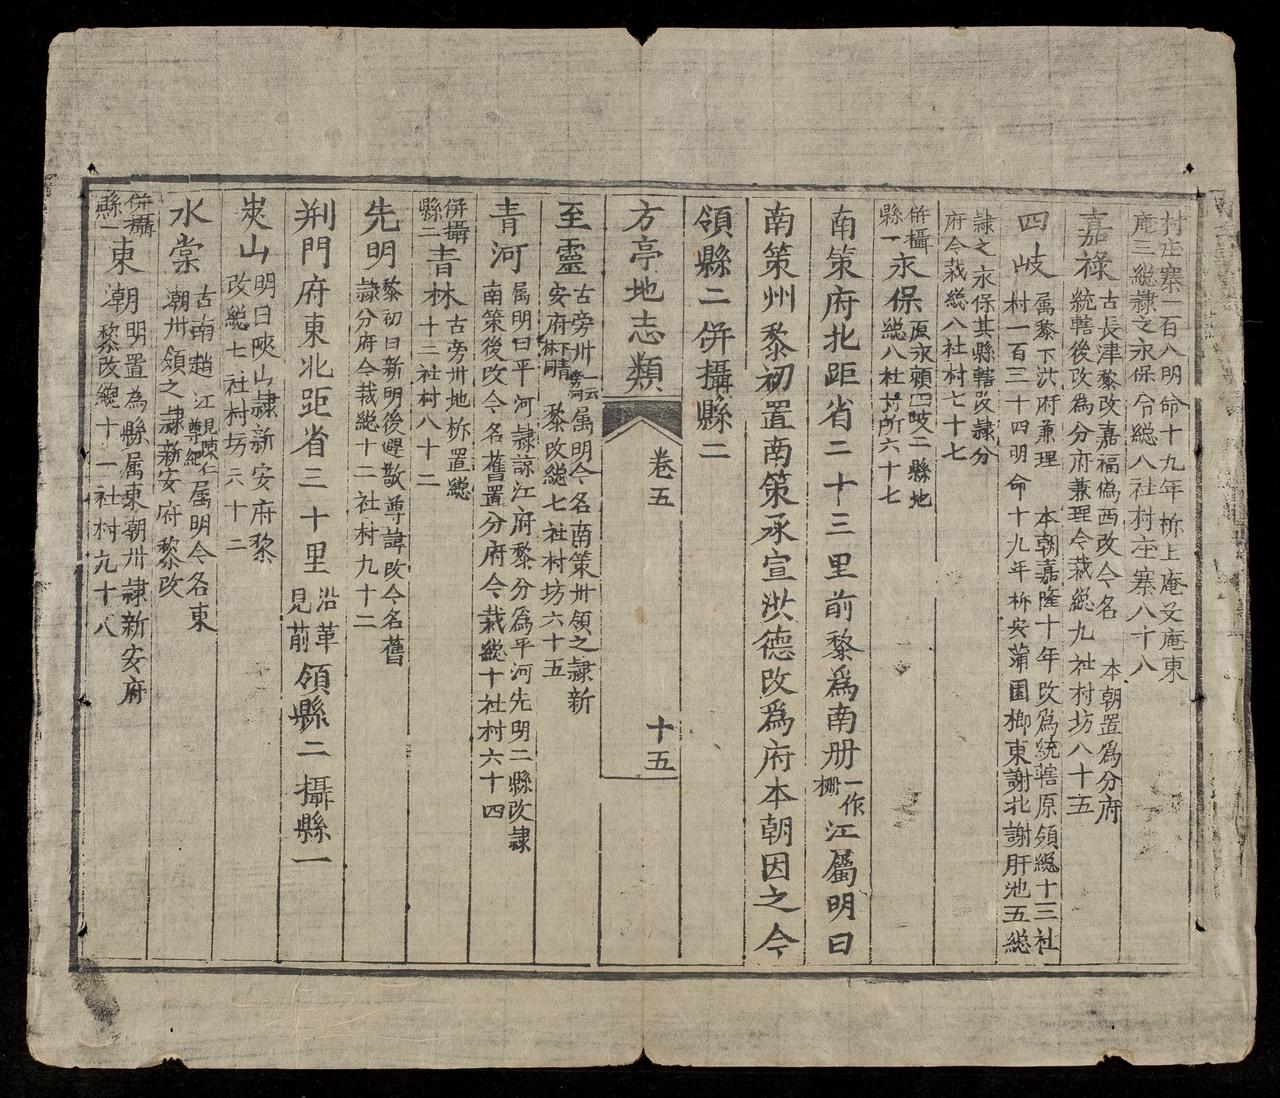 村庄寨一百八明命十九年柝上庵文庵東
庵三緫隷之永保今緫八社村庄寨八十八
嘉祿古長津黎改嘉福偽西改今名 本朝置爲分府
統轄後改為分府兼理今裁緫九社村坊八十五
四岐属黎下洪府兼理 本朝嘉隆十年改爲統轄原領緫十三社
村一百三十四明命十九年柝安蒲園榔東謝北謝肝池五緫
隷之永保其縣轄改隷分
府今裁緫八社村七十七
併攝縣一永保原永頼四岐二縣地
緫八社村所六十七
南策府北距省二十三里前黎爲南册一作栅江屬明曰
南策州黎初置南策承宣洪德改爲府本朝因之今
領縣二併攝縣二
方亭地志類 卷五 十五
至靈古旁州一云旁河属明今名南策州領之隷新
安府黎改緫七社村坊六十五
青河属明曰平河隷諒江府黎分爲平河先明二縣改隷
南策後改今名舊置分府今裁緫十社村六十四
併攝縣二青林古旁州地柝置緫
十二社村八十二
先明黎初曰新明後避敬尊諱改今名舊
隷分府今裁緫十二社村九十二
荆門府東北距省三十里沿革見前領縣二攝縣一
夾山明曰峽山隷新安府黎
改緫七社村坊六十二
水棠古南趙江見陳仁尊紀属明今名東
潮州領之隷新安府黎改
併攝縣一東潮明置為縣属東潮州隷新安府
黎改緫十一社村九十八